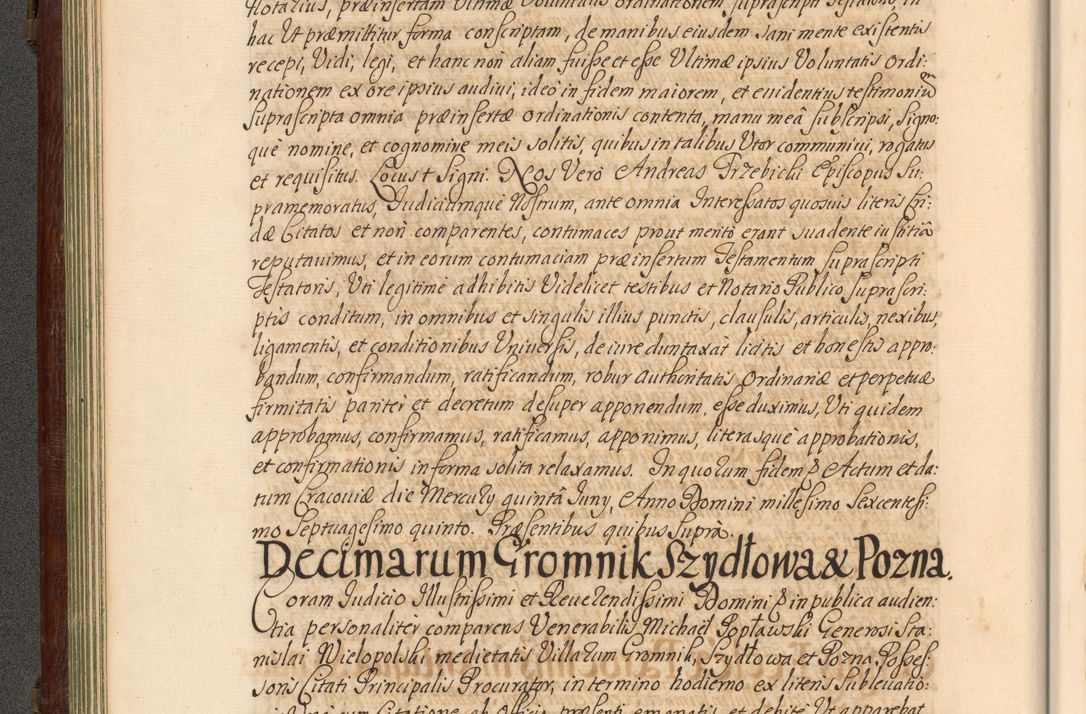 Notarius, præinsertam Ultimæ Voluntatis ordinationem suprascripti Testatoris, in
hac Ut præmittitur forma conscriptam, de manibus eiusdem sani mente existentis
recepi, Vidi, legi, et hanc non aliam fuisse et esse Ultimæ ipsius Voluntatis Ordi:
nationem ex ore ipsius audiui, ideò in fidem maiorem, et euidentius testimoniũ
suprascripta omnia præinsertæ ordinationis contenta, manu meâ subscripsi, signo:
què nomine, et cognomine meis solitis, quibus in talibus Utor communiui, rogatus
et requisitus. Locus † Signi. Nos Verò Andreas Trzebicki Episcopus Su:
pramemoratus, Iudiciumquè Nostrum, ante omnia Interessatos quosuis literis Cri:
dæ Citatos et non comparentes, contumaces prout meritò erant suadente iustitiâ
reputauimus, et in eorum contumaciam præinsertum Testamentum suprascripti
Testatoris, Uti legitimè adhibitis Videlicet testibus et Notario Publico suprascri:
ptis conditum, in omnibus et singulis illius punctis, clausulis, articulis, nexibus,
ligamentis, et conditionibus Uniuersis, de iure duntaxàt licitis et honestis appro:
bandum, confirmandum, ratificandum, robur authentatis Ordinariæ et perpetuæ
firmitatis pariter et decretum desuper apponendum, esse duximus, Uti quidem
approbamus, confirmamus, ratificamus, apponimus, literasquè approbationis,
et confirmationis in forma solita relaxamus. In quorum fidem &. Actum et da:
tum Cracouiæ die Mercury quintâ Iuny, Anno Domini millesimo Sexcentesi:
mo Septuagesimo quinto. Præsentibus quibus Suprà.
Decimarum Gromnik Szydłowa & Pozna.
Coram Iudicio Illustrissimi et Reuerendissimi Domini & in publica audien:
tia personaliter comparens Venerabilis Michaël Popławski Generosi Sta:
nislai Wielopolski medietatis Villarum Gromnik, Szydłowa et Pozna Posses:
soris Citati Principalis Procurator, in termino hodierno ex literis Subleuatio:
Citatione ab Officio præsenti emanatis et debitè Ut apparebat